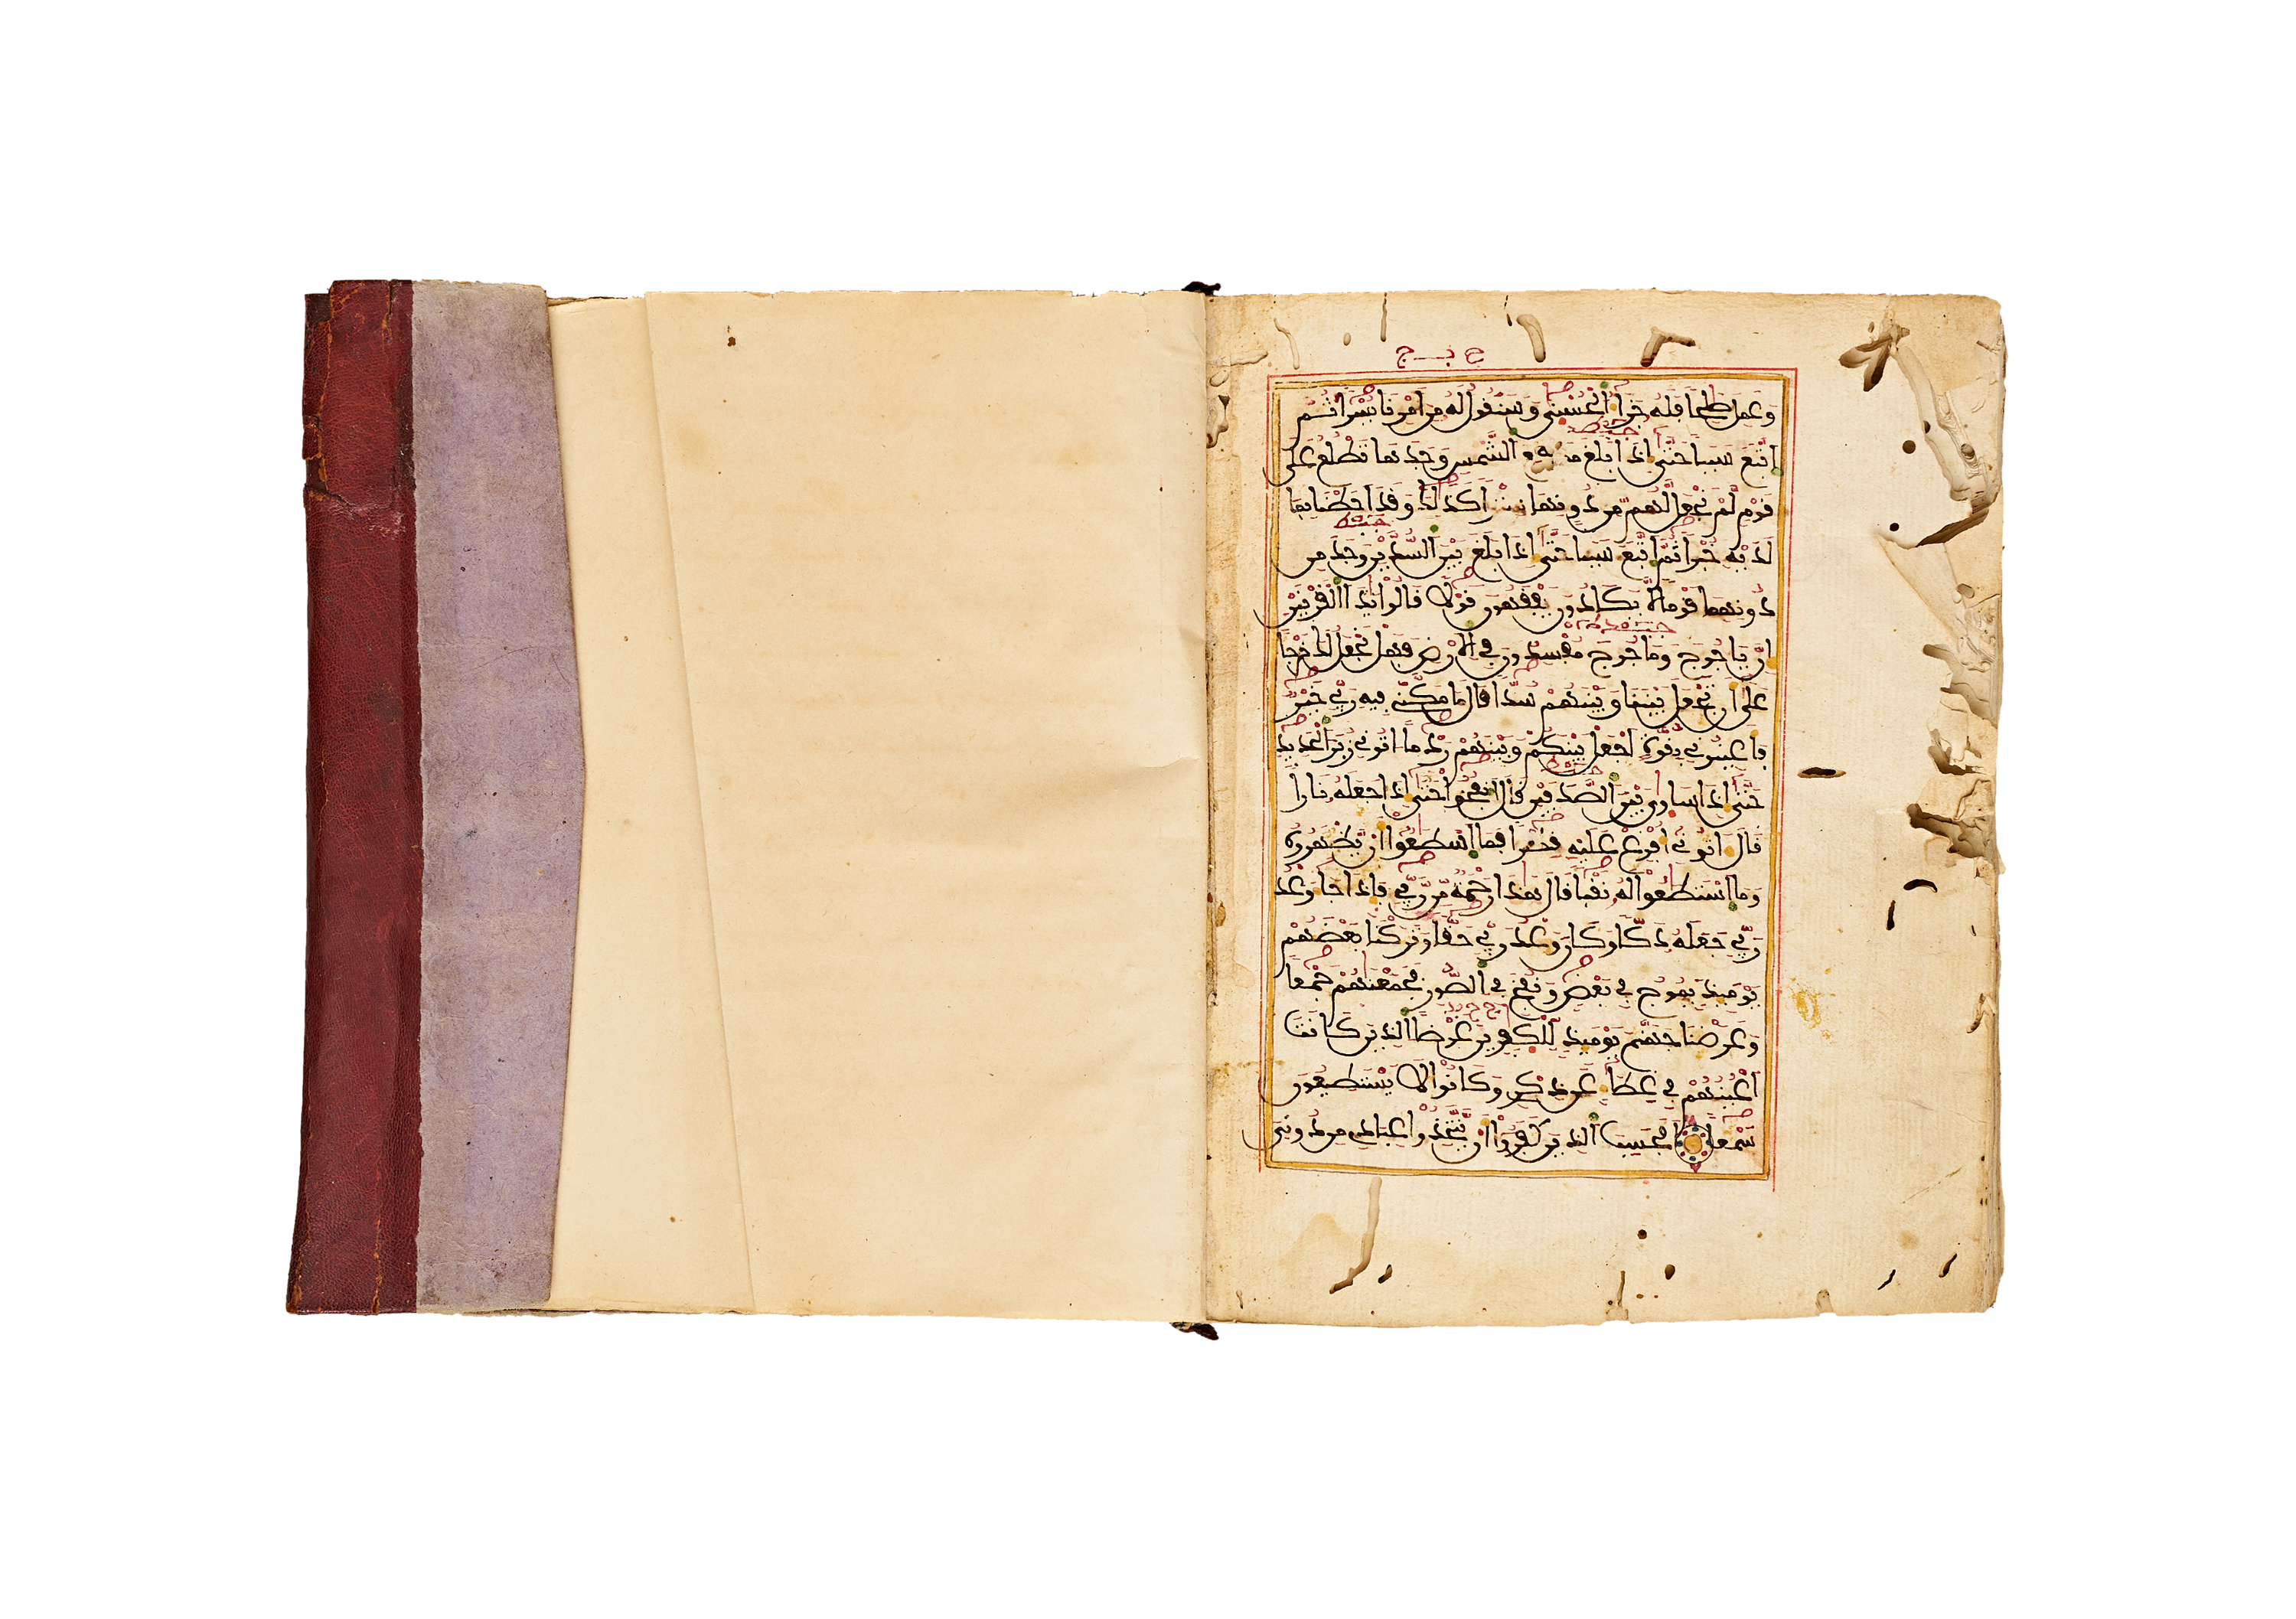 ح بـــ ج
وَعَمِلَ صَٰلِحاً فَلَهُۥ جَزَآءُ اُ۬لْحُسْنَىٰ وَسَنَقُولُ لَهُۥ مِنَ اَمْرِنَا يُسْراً ثُمَّ
اَتَّبَعَ سَبَباً حَتَّىٰٓ إِذَا بَلَغَ اَ۬لشَّمْسِ وَجَدَهَا تَطْلُعُ عَلَىٰ
قَوْمٍ لَّمْ نَجْعَل لَّهُم مِّن دُونِهَا سِتْراً كَذَٰلِكَ وَقَدَ اَحَطْنَا بِمَا
لَدَيْهِ خُبْراً ثُمَّ اَتَّبَعَ سَبَباً حَتَّىٰٓ إِذَا بَلَغَ بَيْنَ اَ۬لسُّدَّيْنِ وَجَدَ مِن
دُونِهِمَا قَوْماً لَّا يَكَادُونَ يَفْقَهُونَ قَوْلاً قَالُواْ يَٰذَا اَ۬لْقَرْنَيْنِ
إِنَّ يَاجُوجَ وَمَاجُوجَ مُفْسِدُونَ فِي اِ۬لَارْضِ فَهَلْ نَجْعَلُ لَكَ خَرْجاً
عَلَىٰٓ أَن تَجْعَلَ بَيْنَنَا وَبَيْنَهُمْ سُدّاً قَالَ مَا مَكَّنِّي فِيهِ رَبِّي خَيْرٌ
فَأَعِينُونِي بِقُوَّةٍ اَجْعَلْ بَيْنَكُمْ وَبَيْنَهُمْ رَدْماً اتُونِي زُبَرَ اَ۬لْحَدِيدِ
حَتَّىٰٓ إِذَا سَاوَىٰ بَيْنَ اَ۬لصَّدَفَيْنِ قَالَ اَ۟نفُخُواْ حَتَّىٰٓ إِذَا جَعَلَهُۥ نَاراً
قَالَ ءَاتُونِيٓ أُفْرِغْ عَلَيْهِ قِطْراً فَمَا اَ۪سْطَٰعُوٓاْ أَنْ يَّظْهَرُوهُ
وَمَا اَ۪سْتَطَٰعُواْ لَهُۥ نَقْباً قَالَ هَٰذَا رَحْمَةٌ مِّن رَّبِّي فَإِذَا جَآءَ وَعْدُ
رَبِّي جَعَلَهُۥ دَكّاً وَكَانَ وَعْدُ رَبِّي حَقّاً وَتَرَكْنَا بَعْضَهُمْ
يَوْمَئِذٍ يَمُوجُ فِي بَعْضٍ وَنُفِخَ فِي اِ۬لصُّورِ فَجَمَعْنَٰهُمْ جَمْعاً
وَعَرَضْنَا جَهَنَّمَ يَوْمَئِذٍ لِّلْكٰفِرِينَ عَرْضاً اِ۬لذِينَ كَانَتَ
اَعْيُنُهُمْ فِي غِطَآءٍ عَن ذِكْرِي وَكَانُواْ لَا يَسْتَطِيعُونَ
سَمْعاً اَفَحَسِبَ اَ۬لذِينَ كَفَرُوٓاْ أَنْ يَّتَّخِذُواْ عِبَادِي مِن دُونِيَ